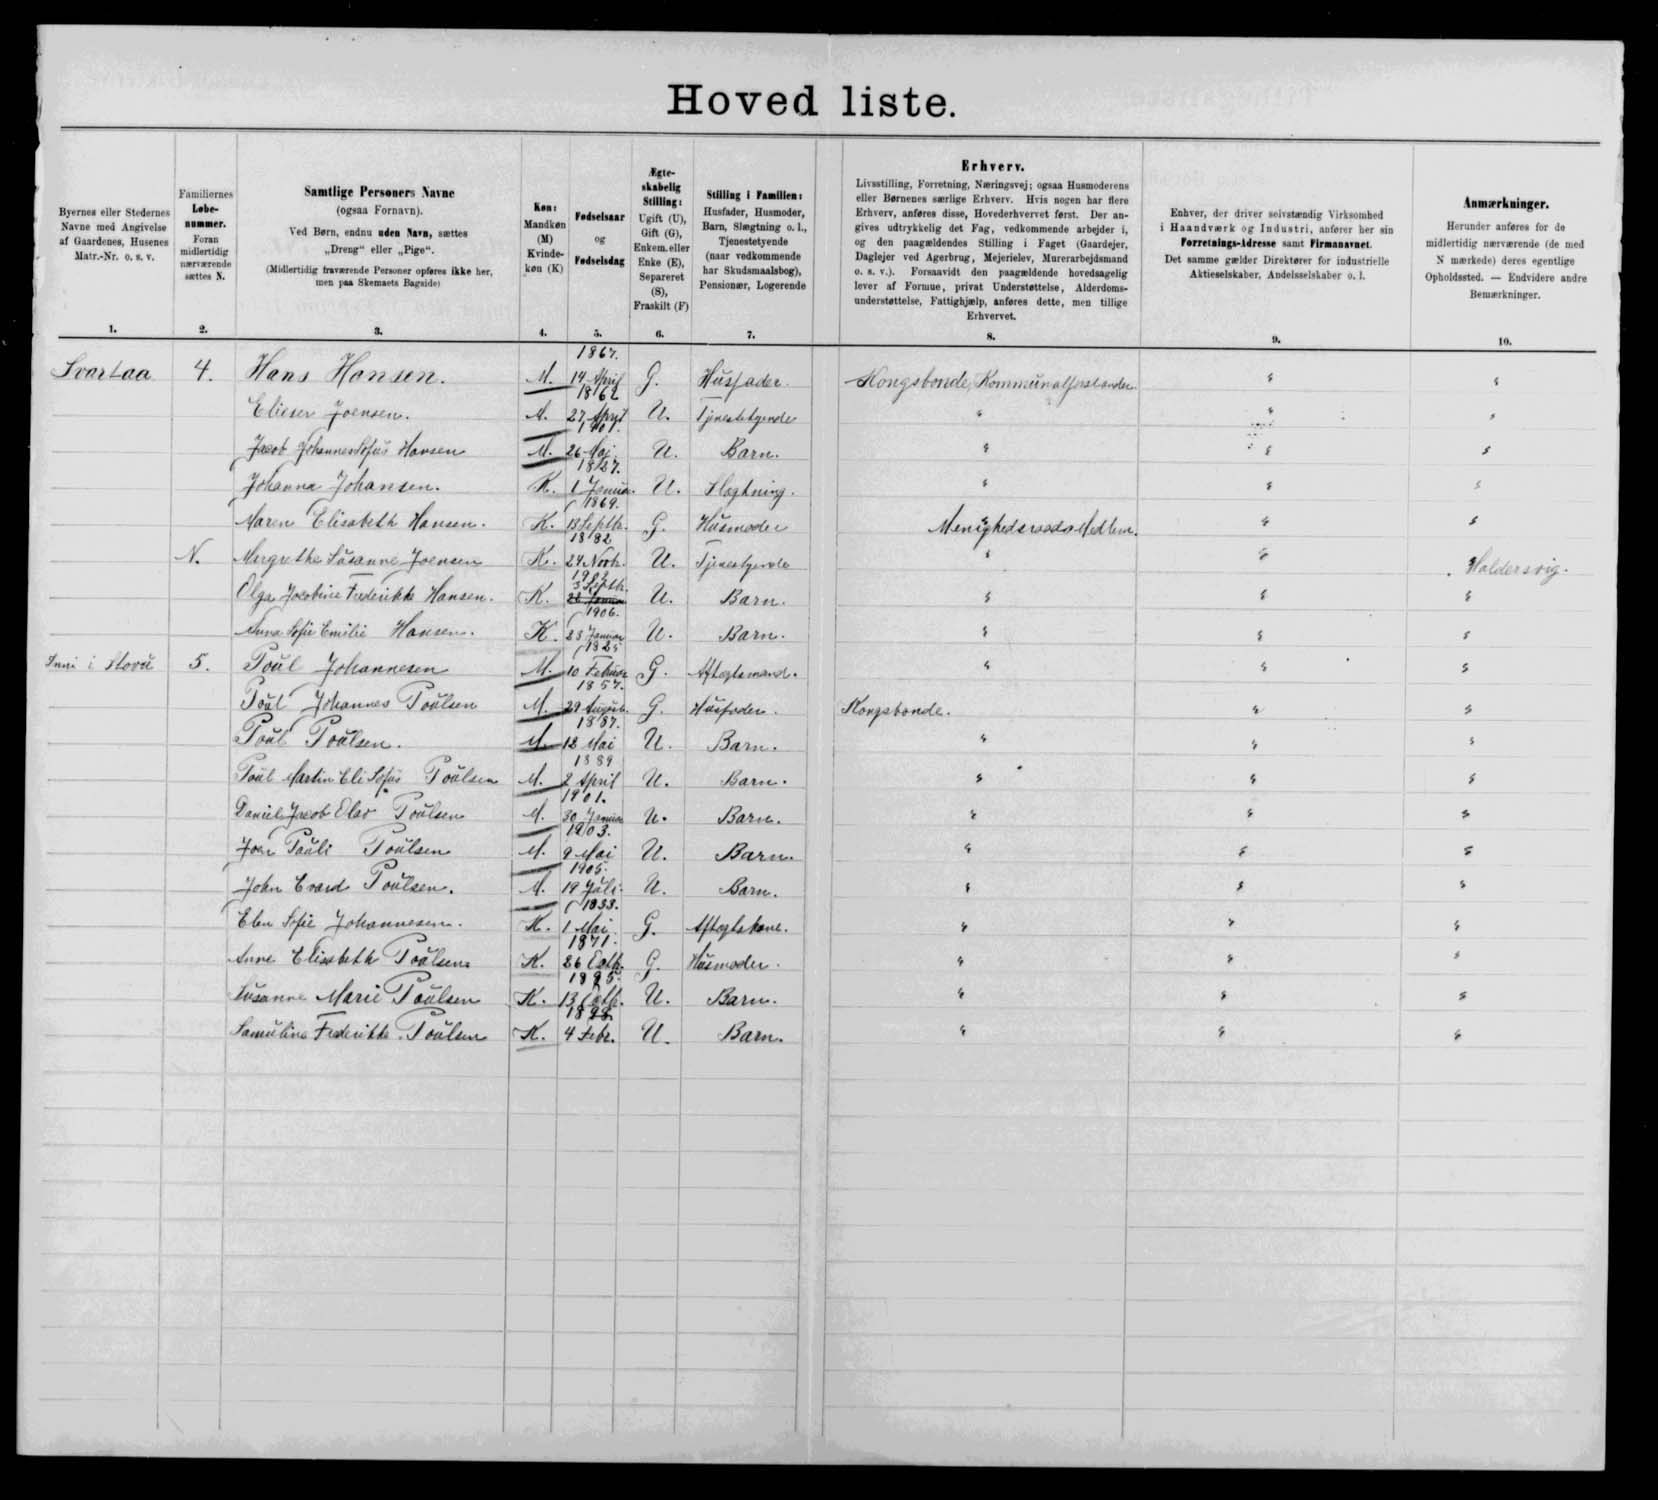 Hoved liste.
Byernes eller Stedernes Navne med Angivelse af Gaardenes, Husenes Matr.-Nr. o. s. v.
Familiernes Løbe-nummer. Foran midlertidig nærværende sættes N.
Samtlige Personers Navne
(ogsaa Fornavn).
Ved Børn, endnu uden Navn, sættes
„Dreng“ eller „Pige“.
(Midlertidig fraværende Personer opføres ikke her,
men paa Skemaets Bagside)
Køn: Mandkøn (M) Kvinde-køn (K)
Fødselsaar og Fødselsdag
Ægte-skabelig Stilling: Ugift (U), Gift (G), Enkem. eller Enke (E), Separeret (S), Fraskilt (F)
Stilling i Familien:
Husfader, Husmoder,
Barn, Slægtning o. l.,
Tjenestetyende
(naar vedkommende
har Skudsmaalsbog),
Pensionær, Logerende
Erhverv.
Livsstilling, Forretning, Næringsvej; ogsaa Husmoderens
eller Børnenes særlige Erhverv. Hvis nogen har flere
Erhverv, anføres disse, Hovederhvervet først. Der an-
gives udtrykkelig det Fag, vedkommende arbejder i,
og den paagældendes Stilling i Faget (Gaardejer,
Daglejer ved Agerbrug, Mejerielev, Murerarbejdsmand
o. s. v.). Forsaavidt den paagældende hovedsagelig
lever af Formue, privat Understøttelse, Alderdoms-
understøttelse, Fattighjælp, anføres dette, men tillige
Erhvervet.
Enhver, der driver selvstændig Virksomhed
i Haandværk og Industri, anfører her sin
Forretnings-Adresse samt Firmanavnet.
Det samme gælder Direktører for industrielle
Aktieselskaber, Andelsselskaber o. l.
Anmærkninger.
Herunder anføres for de
midlertidig nærværende (de med
N mærkede) deres egentlige
Opholdssted. — Endvidere andre
Bemærkninger.
1. 2. 3. 4. 5. 6. 7. 8. 9. 10.
Svartaa 4. Hans Hansen. M. 1867. 14 April G. Husfader. Kongsbonde, Kommunalforstander " "
Elieser Joensen. M. 1862 27 April U. Tjenestetyende " " "
Jacob Johannes Sofus Hansen M. 1901. 26 Maj U. Barn. " " "
Johanna Johansen. K. 1827. 1 Januar. U. Slægtning. " " "
Maren Elisabeth Hansen. K. 1869. 13 Septbr. G. Husmoder Menighedsraads Medlem. " "
N. Margrethe Susanne Joensen K. 1882 24 Novb. U. Tjenestyende " " Haldersvig.
Olga Jacobine Frederikke Hansen. K. 3 Septbr. U. Barn. " " "
Anna Sofie Emilie Hansen. K. 1906. 23 Januar U. Barn. " " "
Inni i Stovu 5. Poul Johannesen M. 1825 10 Februar G. Aftægtsmand. " " "
Poul Johannes Poulsen M. 1857. 29 August. G. Husfader. Kongsbonde. " "
Poul Poulsen. M. 1887. 12 Mai U. Barn. " " "
Poul Martin Eli Sofus Poulsen M. 1889 2 April U. Barn. " " "
Daniel Jacob Olav Poulsen M. 1901. 30 Januar U. Barn. " " "
Joen Pauli Poulsen M. 1903. 9 Mai U. Barn. " " "
John Evard Poulsen. M. 1905. 19 Juli. U. Barn. " " "
Elen Sofie Johannesen. K. 1833. 1 Mai G. Aftægtskone. " " "
Anne Elisabeth Poulsen K. 1871. 26 Octb. G. Husmoder. " " "
Susanne Marie Poulsen K. 1895. 13 Octb. U. Barn. " " "
Samuline Frederikke Poulsen K. 1898. 4 Febr. U. Barn. " " "